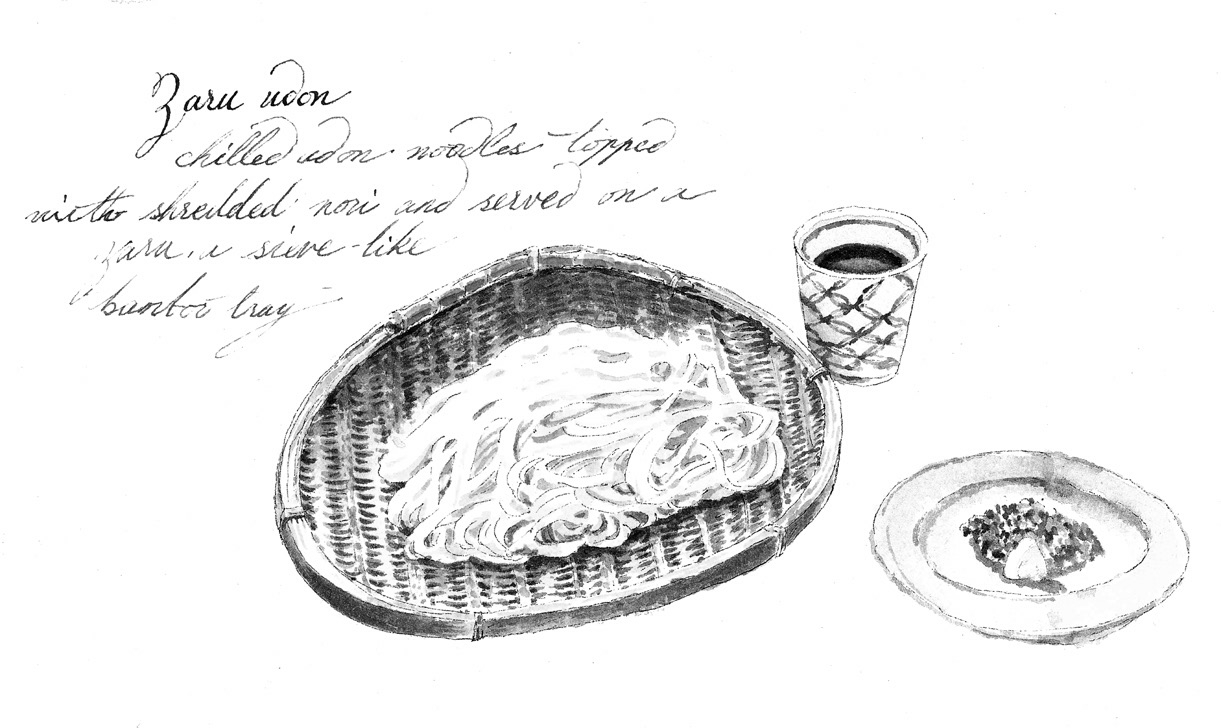 Zaru udon
chilled udon noodles topped
with shredded nori and served on a
zaru, a sieve-like
bamboo tray